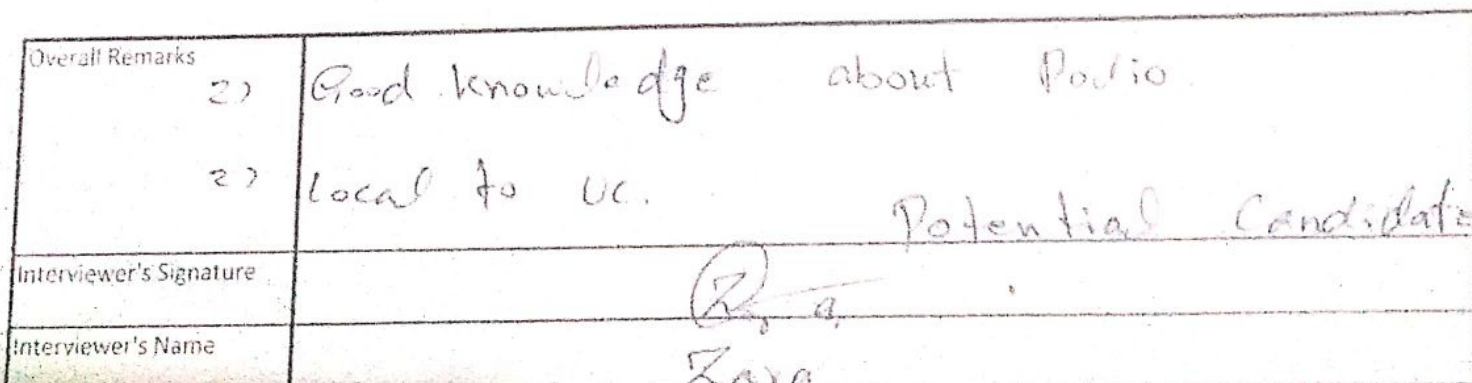 Overall Remarks
2) Good knowledge about Polio.
2) Local to UC.
Potential Candidate
Interviewer's Signature
Interviewer's Name
Zara